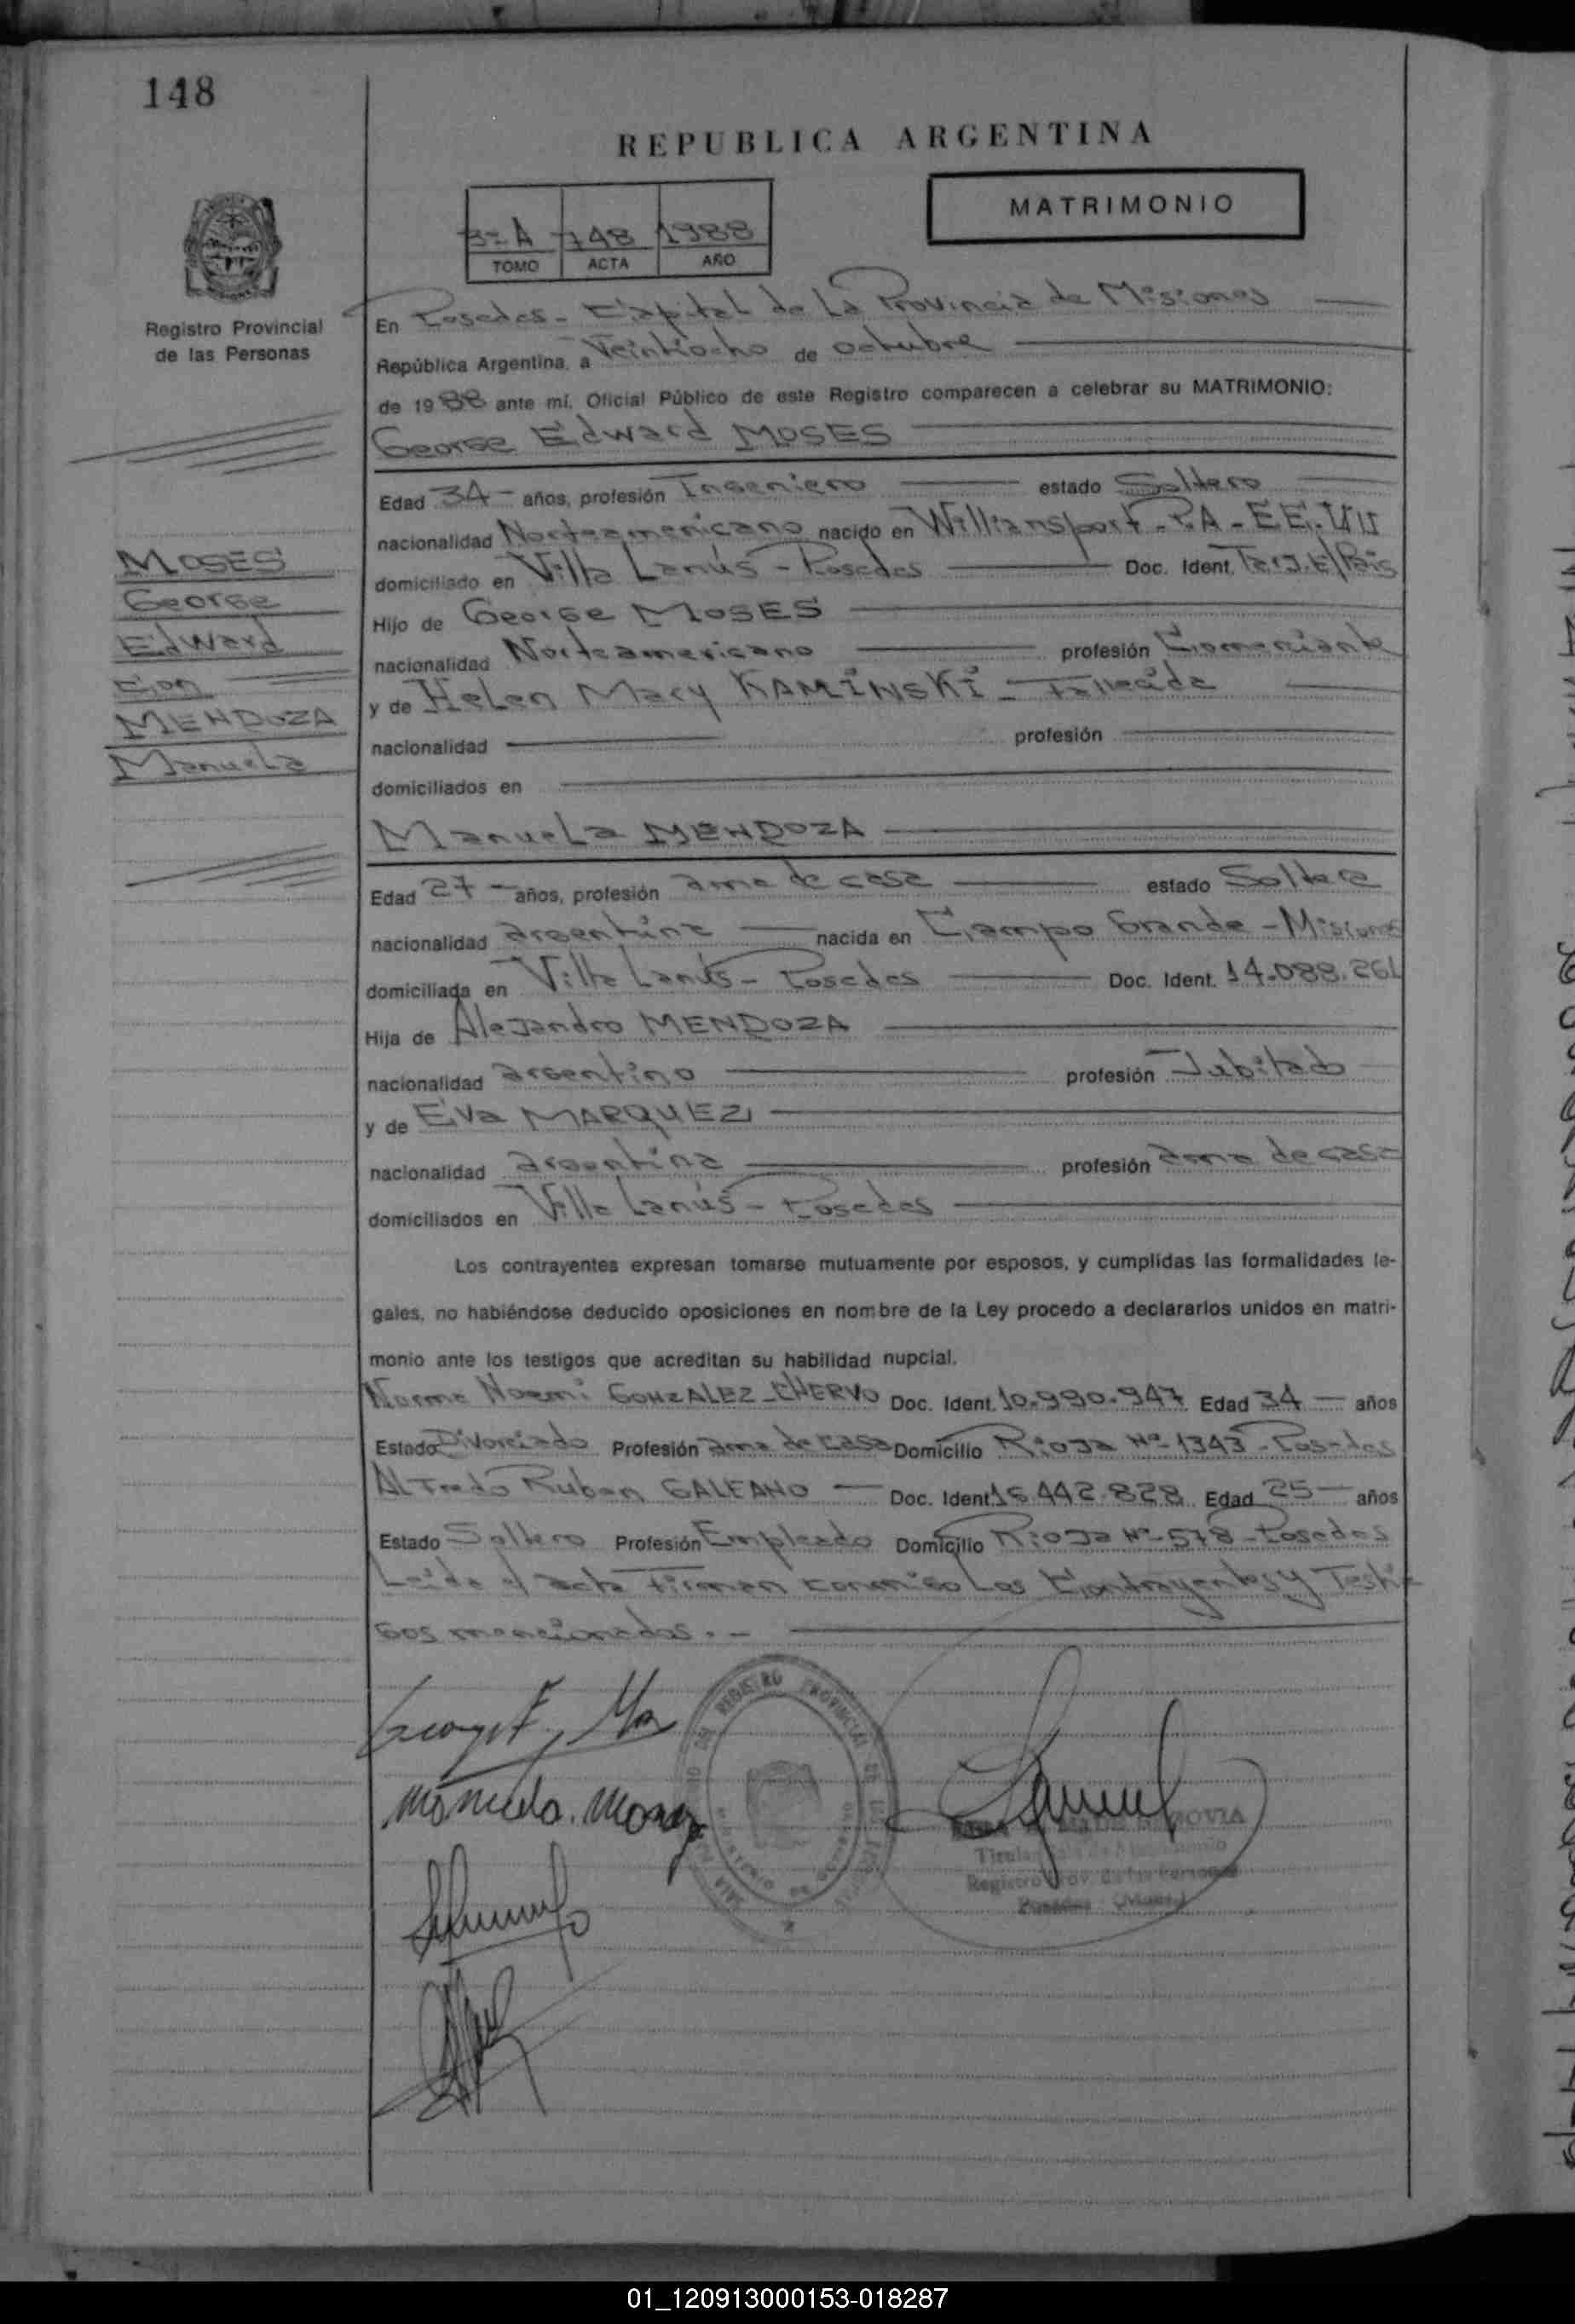 148
REPUBLICA ARGENTINA
MATRIMONIO
3º A 148 1988
TOMO ACTA AÑO
Registro Provincial
de las Personas
En Posadas - Capital de La Provincia de Misiones
República Argentina, a Veintiocho de octubre
de 1988 ante mí, Oficial Público de este Registro comparecen a celebrar su MATRIMONIO:
George Edward MOSES
Edad 34 - años, profesión Ingeniero estado Soltero
nacionalidad Norteamericano nacido en Williansport - P.A - EE.UU
domiciliado en Villa Lanús - Posadas Doc. Ident. Tarj. E/País
Hijo de George MOSES
nacionalidad Norteamericano profesión Comerciante
y de Helen Mary KAMINSKI - Fallecida
nacionalidad profesión
domiciliados en
MOSES
George
Edward
Con
MENDOZA
Manuela
Manuela MENDOZA
Edad 27 - años, profesión ama de casa estado Soltera
nacionalidad argentina nacida en Campo Grande - Misiones
domiciliada en Villa Lanús - Posadas Doc. Ident. 14.088.261
Hija de Alejandro MENDOZA
nacionalidad argentino profesión Jubilado
y de Eva MARQUEZ
nacionalidad argentina profesión ama de casa
domiciliados en Villa Lanús - Posadas
Los contrayentes expresan tomarse mutuamente por esposos, y cumplidas las formalidades le-
gales, no habiéndose deducido oposiciones en nombre de la Ley procedo a declararlos unidos en matri-
monio ante los testigos que acreditan su habilidad nupcial.
Norma Noemi GONZALEZ CHERVO Doc. Ident. 10.990.947 Edad 34 - años
Estado Divorciado Profesión ama de casa Domicilio Rioja Nº 1343 - Posadas
Alfredo Ruben GALEANO - Doc. Ident. 16.442.828 Edad 25 - años
Estado Soltero Profesión Empleado Domicilio Rioja Nº 578 - Posadas
Leída el acta Firman conmigo Los Contrayentes y Testi
gos mencionados. -
Manuela
REGISTRO PROVINCIAL DE LAS
Titular
Registro Prov. de las Personas
Posadas (Mnes.)
01_120913000153-018287